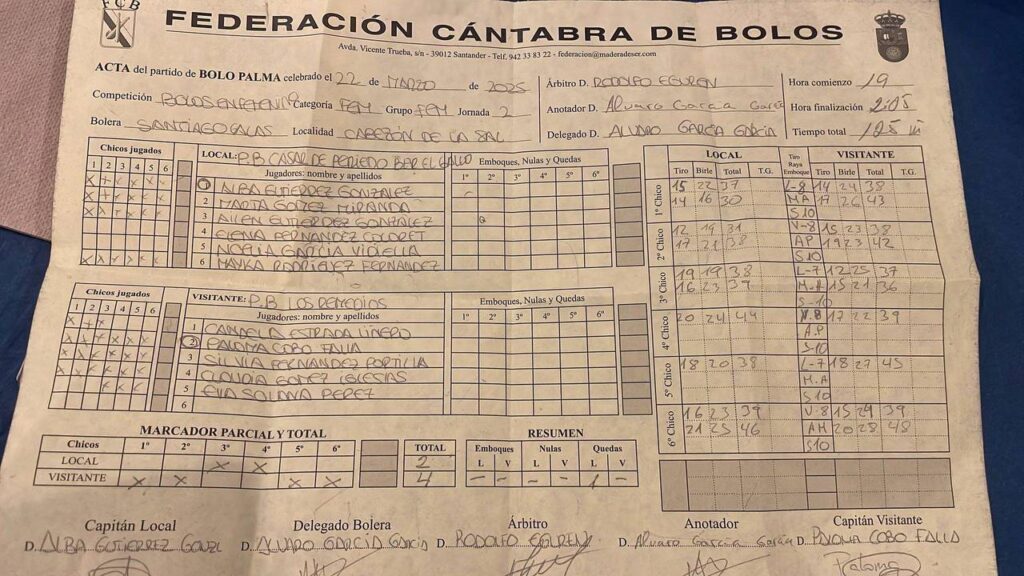 FCB
FEDERACIÓN CÁNTABRA DE BOLOS
Avda. Vicente Trueba, s/n - 39012 Santander - Telf. 942 33 83 22 - federacion@maderadeser.com
ACTA del partido de BOLO PALMA celebrado el 22 de MARZO de 2025
Competición Categoría FEM Grupo FEM Jornada 2
Bolera SANTIAGO GALAS Localidad CABEZÓN DE LA SAL
Árbitro D. RODOLFO EGUREN
Anotador D. Alvaro Garcia Garcia
Delegado D. ALVARO GARCÍA GARCÍA
Hora comienzo 19
Hora finalización 21:05
Tiempo total 125 m
Chicos jugados
1 2 3 4 5 6
LOCAL: P.B. CASAR DE PERIEDO BAR EL GALLO
Jugadores: nombre y apellidos
Emboques, Nulas y Quedas
1º 2º 3º 4º 5º 6º
1 ALBA GUTIERREZ GONZALEZ
2 MARTA GOMEZ MIRANDA
3 AILEN GUTIERREZ GONZÁLEZ
4 ELENA FERNANDEZ
5 NOELIA GARCIA
6 MAYKA RODRÍGUEZ FERNANDEZ
Chicos jugados
1 2 3 4 5 6
VISITANTE: P.B. LOS REMEDIOS
Jugadores: nombre y apellidos
Emboques, Nulas y Quedas
1º 2º 3º 4º 5º 6º
1 CANDELA ESTRADA LIÑERO
2 PALOMA COBO FALLA
3 SILVIA FERNANDEZ PORTILLA
4 CLAUDIA GOMEZ IGLESIAS
5 EVA SOLANA PEREZ
6
LOCAL Tiro Raya Emboque VISITANTE
Tiro Birle Total T.G. Tiro Birle Total T.G.
1º Chico 15 22 37 L-8 14 24 38
14 16 30 MA 17 26 43
S10
2º Chico 12 19 31 V-8 15 23 38
17 21 38 AP 19 23 42
S10
3º Chico 19 19 38 L-7 12 25 37
16 23 39 M.A 15 21 36
S-10
4º Chico 20 24 44 V.8 17 22 39
A.P
S10
5º Chico 18 20 38 L-7 18 27 45
M.A
S10
6º Chico 16 23 39 V-8 15 24 39
21 25 46 AM 20 28 48
S10
MARCADOR PARCIAL Y TOTAL
Chicos 1º 2º 3º 4º 5º 6º TOTAL
LOCAL X X 2
VISITANTE X X X X 4
RESUMEN
Emboques Nulas Quedas
L V L V L V
- - - - 1 -
Capitán Local Delegado Bolera Árbitro Anotador Capitán Visitante
D. ALBA GUTIERREZ GONZL D. ALVARO GARCÍA GARCÍA D. RODOLFO EGUREN D. Alvaro Garcia Garcia D. PALOMA COBO FALLA
Paloma